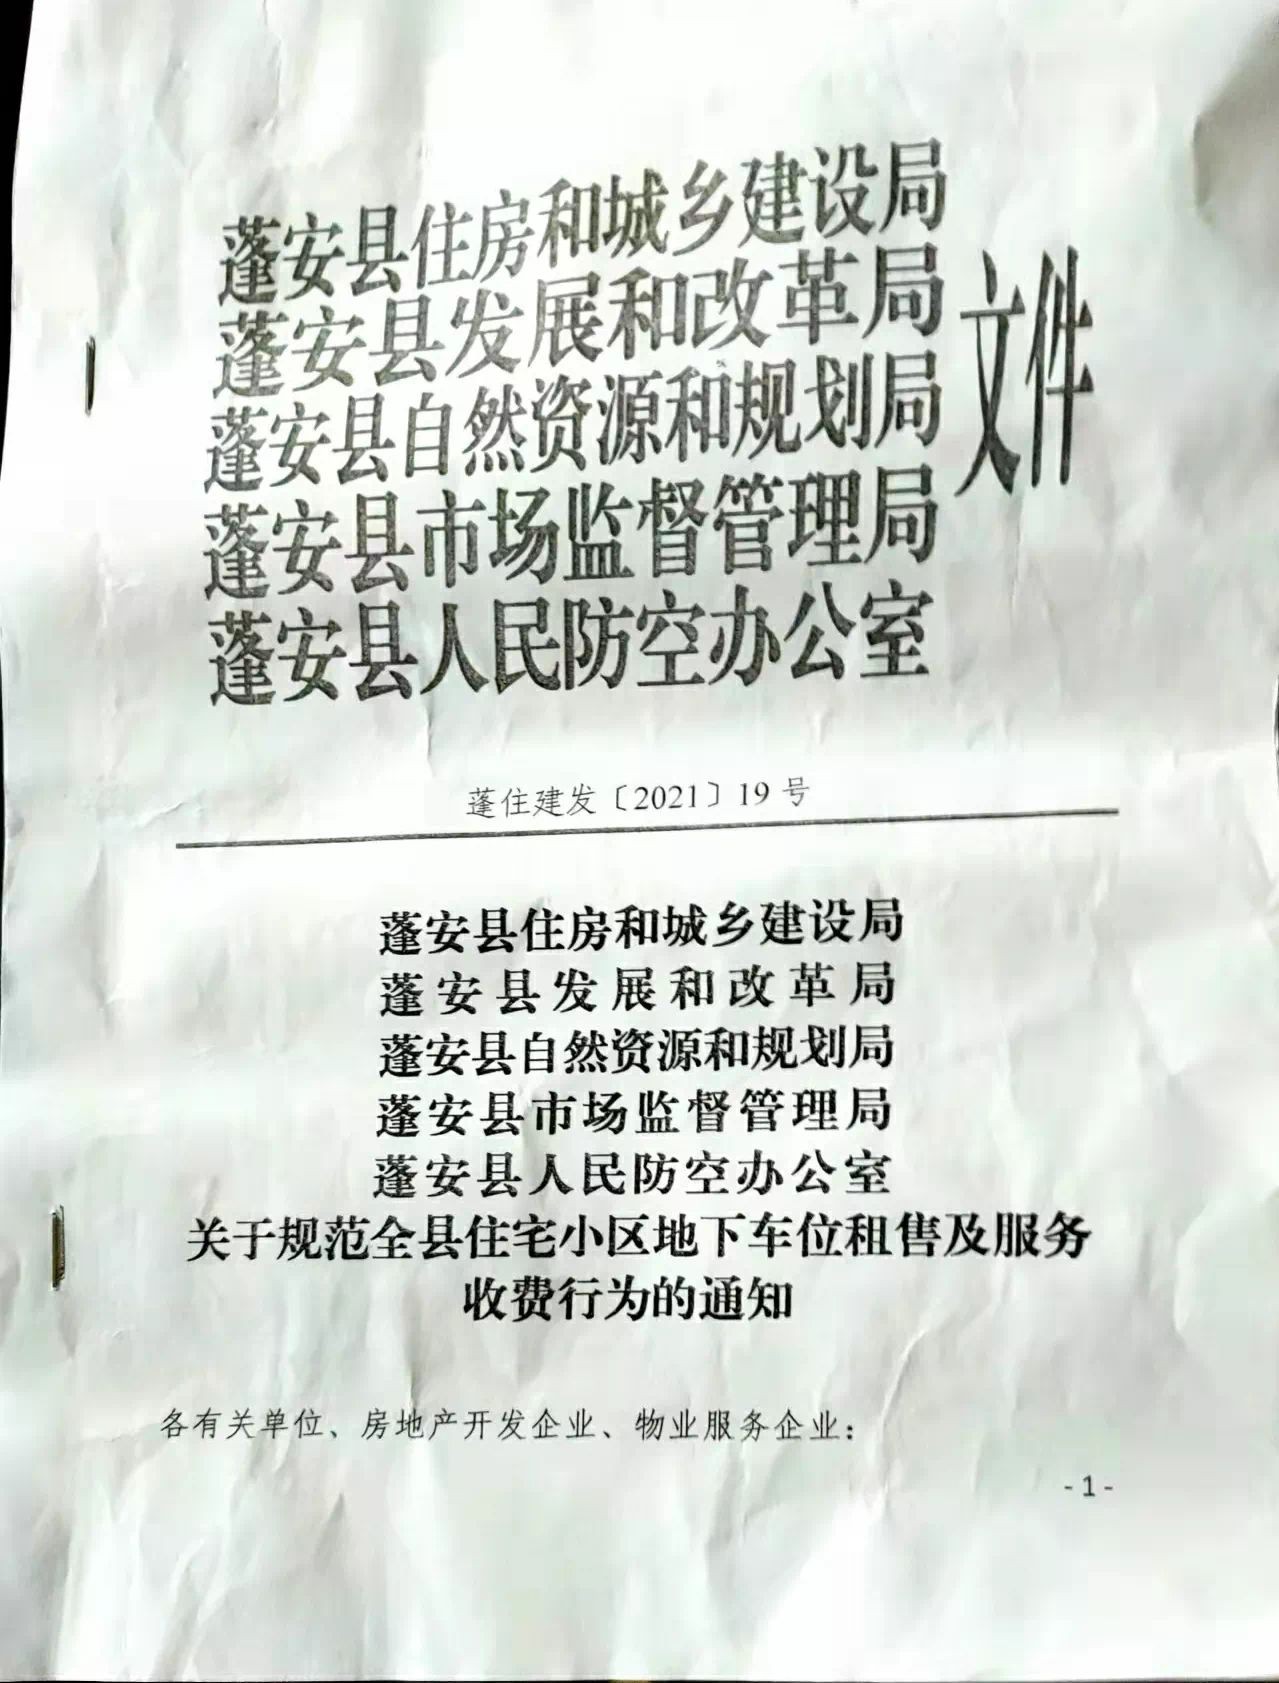 蓬安县住房和城乡建设局
蓬安县发展和改革局
蓬安县自然资源和规划局
蓬安县市场监督管理局
蓬安县人民防空办公室
文件
蓬住建发〔2021〕19号
蓬安县住房和城乡建设局
蓬安县发展和改革局
蓬安县自然资源和规划局
蓬安县市场监督管理局
蓬安县人民防空办公室
关于规范全县住宅小区地下车位租售及服务
收费行为的通知
各有关单位、房地产开发企业、物业服务企业：
- 1 -